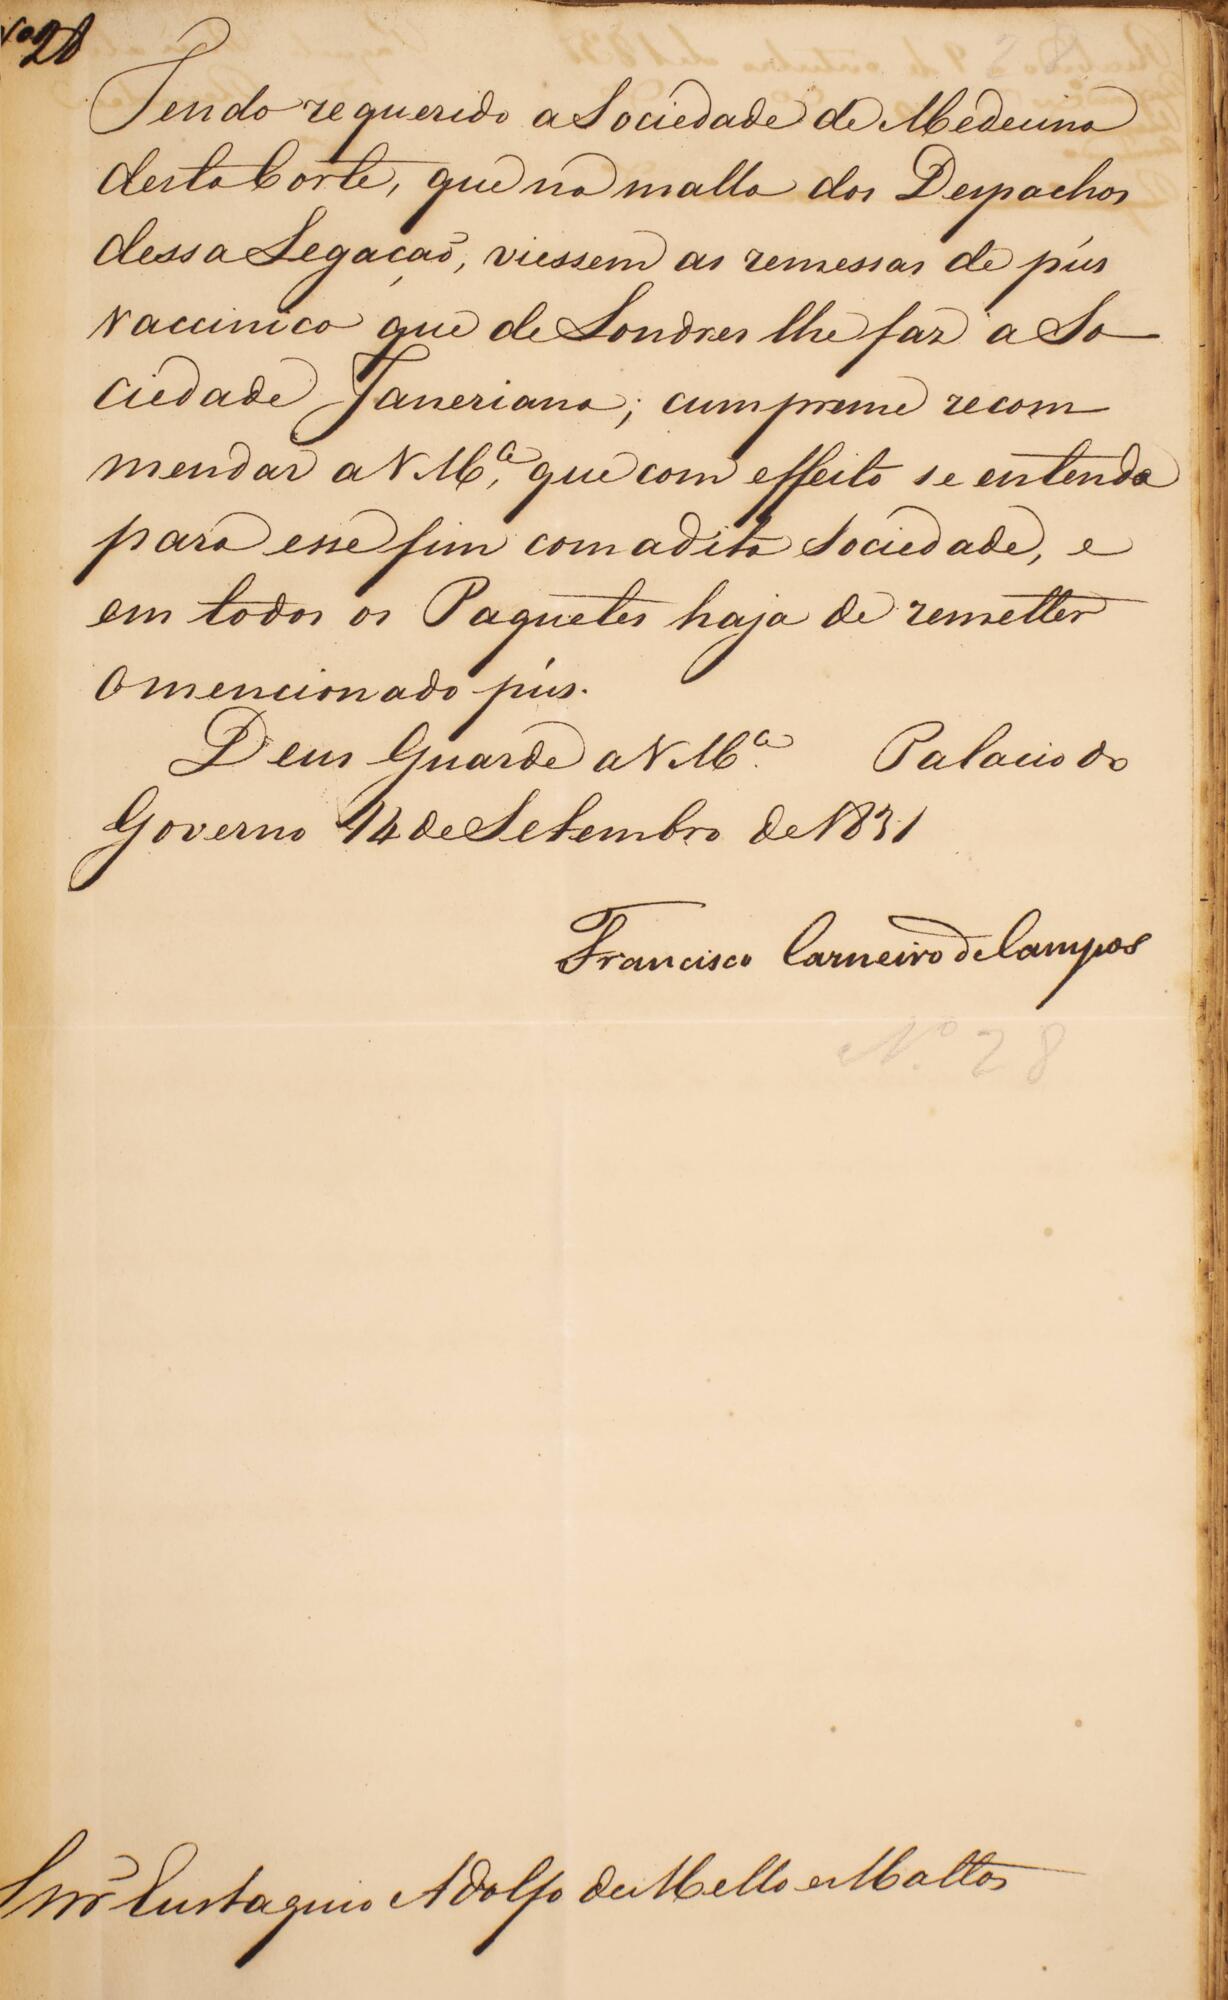 Nº 28
Tendo requerido a Sociedade de Medecina
desta Corte, que na malla dos Despachos
dessa Legação, viessem as remessas de pús
vaccinico que de Londres lhe faz a So
ciedade Janeriana; cumpreme recom
mendar a V Mce, que com effeito se entenda
para esse fim com a dita Sociedade, e
em todos os Paquetes haja de remetter
o mencionado pús.
Deus Guarde a V Mce. Palacio do
Governo 14 de Setembro de 1831
Francisco Carneiro de Campos
Nº 28
Snr Eustaquio Adolfo de Mello e Mattos